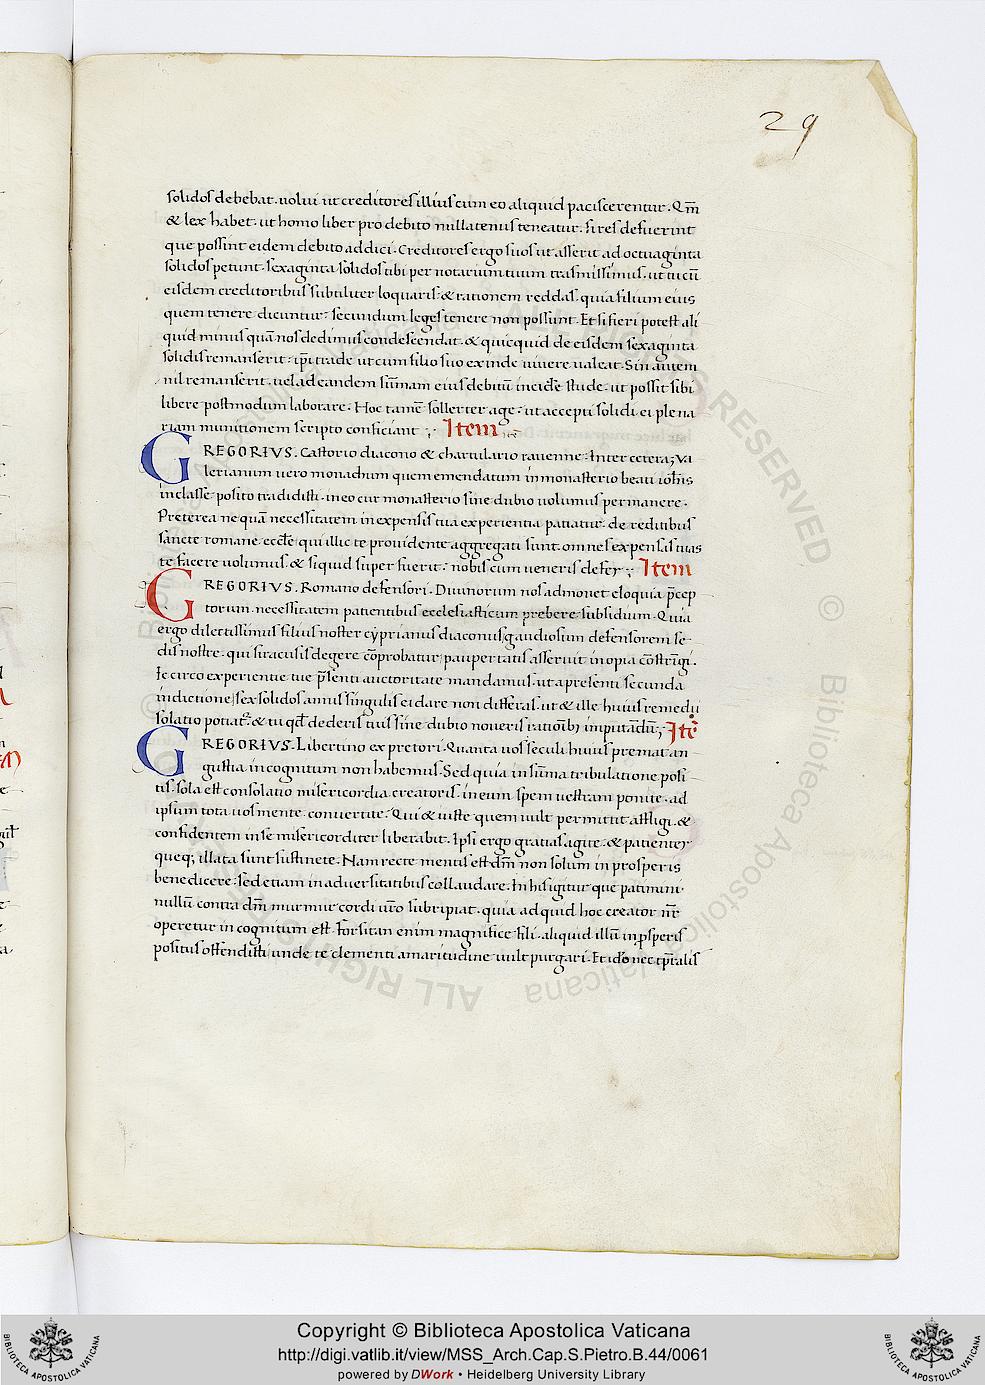 29
solidos debebat. uolui ut creditores illius cum eo aliquid paciscerentur. Qm̅
& lex habet. ut homo liber pro debito nullatenus teneatur. si res defuerint
que possint eidem debito addici. Creditores ergo suos ut asserit ad octuaginta
solidos petunt. sexaginta solidos tibi per notarium tuum trasmissimus. ut tu cū
eisdem creditoribus subtiliter loquaris. & rationem reddas. quia filium eius
quem tenere dicuntur. secundum leges tenere non possunt. Et si fieri potest ali
quid minus quā nos dedimus condescendat. & quicquid de eisdem sexaginta
solidis remanserit. ip̅i trade ut cum filio suo exinde uiuere ualeat. Sin autem
nil remanserit. uel ad eandem sūmam eius debitū incide stude. ut possit sibi
libere postmodum laborare. Hoc tamē sollerter age. ut accepti solidi ei plena
riam munitionem scripto confsiciant. Item
GREGORIVS. Castorio diacono & chartulario rauenne. Inter cetera; Va
lerianum uero monachum quem emendatum in monasterio beati ioh̅is
in classe posito tradidisti. in eo cur monasterio sine dubio uolumus permanere.
Preterea ne quā necessitatem in expensis tua experientia patiatur. de reditibus
sancte romane eccl̅e qui illic te prouidente aggregati sunt. omnes expensas tuas
te facere uolumus. & siquid super fuerit. nobis cum ueneris defer; Item
GREGORIVS. Romano defensori. Diuinorum nos admonet eloquia p̅cep
torum. necessitatem patientibus ecclesiasticum prebere subsidium. Quia
ergo dilectissimus filius noster cyprianus diaconus, gaudiosum defensorem se
dis nostre. qui siracusis degere cōprobatur, paupertatis asseruit inopia cōstrīgi.
Ic circo experientie tue p̅senti auctoritate mandamus. ut a presenti secunda
indictione, sex solidos annis singulis ei dare non differas. ut & ille huius remedii
solatio potiat᷑. & tu qd̅ dederis tuis sine dubio noueris ratioīb; imputādū; Itē
GREGORIVS. Libertino ex pretori. Quanta uos seculi huius premat an
gustia incognitum non habemus. Sed quia in sūma tribulatione posi
tis. sola est consolatio misericordia creatoris. in eum spem uestram ponite. ad
ipsum tota uos mente conuertite. Qui & iuste quem uult permittit affligi. &
confidentem in se misericorditer liberabit. Ipsi ergo gratias agite. & patienter
queq; illata sunt sustinete. Nam recte mentis est dm̅ non solum in prosperis
benedicere. sed etiam in aduersitatibus collaudare. In his igitur que patimini.
nullū contra dm̅ murmur cordi ur̅o subripiat. quia ad quid hoc creator nr̅
operetur incognitum est. Forsitan enim magnifice fili. aliquid illū in ꝓsperis
positus offendisti unde te clementi amaritudine uult purgari. Et ido̅ nec tp̅ralis
Copyright © Biblioteca Apostolica Vaticana
http://digi.vatlib.it/view/MSS_Arch.Cap.S.Pietro.B.44/0061
powered by DWork • Heidelberg University Library